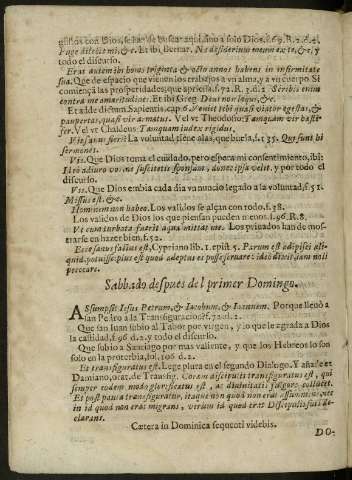 gustos con Dios, se han de buscar aqui, sino a solo Dios. f. 69. R. 2. d. 2.
Fuge dilecte mi, &c. Et ibi, Bernar. Ne desiderium meum ex te, &c. y
todo el discurso.
Erat autem ibi homo triginta & octo annos habens in infirmitate
sua. Que de espacio que vienen los trabajos a vn alma, y a vn cuerpo Si
comiença las prosperidades, que apriessa, f. 72. R. 3. d. 2 Scribis enim
contra me amaritudines: Et ibi Greg. Deus non loqui, &c.
Et adde dictum, Sapientis, cap. 6. Veniet tibi quasi viator egestas, &
paupertas, quasi vir armatus. Vel vt Theodosio: Tamquam vir bardus
Vel vt Chaldeus: Tamquam iudex rigidus,
Vis sanus fieri? La voluntad tiene alas, que buela, f. 135. Qui sunt hi
sermones.
Vis. Que Dios toma el cuidado, pero espera mi consentimiento, ibi:
Et todo el
discurso.
Vis. Que Dios embia cada dia vn nuncio legado a la voluntad, f. 51.
Missus est, &c.
Hominem non habeo. Los validos se alçan con todo, f. 38.
Los validos de Dios los que piensan pueden menos. f. 96. R. 8.
Vt cum turbata fuerit aqua mittat me. Los privados han de mos-
trarse en hazer bien, f. 52.
Ecce sanus factus est, Cypriano lib. 1. epist. 5. Parum est adipisci ali-
quid potuisse: plus est quod adeptus es posse seruare: ideo dixit: iam noli
peccare.
Sabbado despues del primer Domingo.
ASsumpsit Iesus Petrum, & Iacobum, & Ioannem. Porque lleuò a
san Pedro a la Transfiguracion? f. 72. d. 2.
Que san Iuan subio al Tabor por virgen, y lo que agrada a Dios
la castidad, f. 96. d. 2. y todo el discurso.
Que subio a Santiago por mas valiente, y que los Hebreos lo son
solo en la proterbia, fol. 106. d. 2.
Et transfiguratus est. Lege plura en el segundo Domingo. Y añade et
Damiano, orat. de Transfig. Coram discipulis transfiguratus est, qui
semper eodem modo glorificatus est, ac diuinitatis fulgore collucet.
Et post pauca transfiguratur, itaque non quod non eras assumens, nec
in id quod non eras migrans, verum id quod eras Discipulis tuis de-
clarans.
Cætera in Dominica sequenti videbis.
DO-